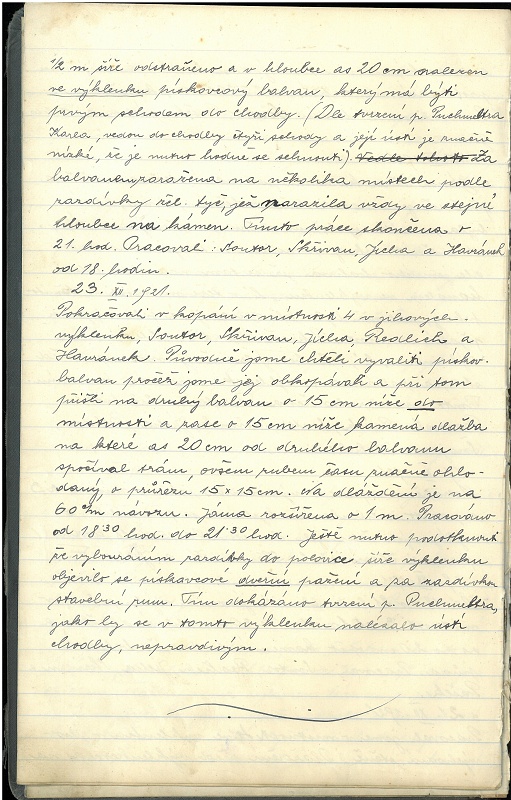 ½ m šíře odstraněno a v hloubce as 20 cm nalezen
ve výklenku pískovcový balvan, který má býti
prvým schodem do chodby. (Dle tvrzení p. Puchmeltra
Karla, vedou do chodby čtyři schody a její ústí je značně
nízké, že je nutno hodně se sehnouti). Za
balvanem zaražena na několika místech podle
zazdívky žel. tyč, jež narazila vždy ve stejné
hloubce na kámen. Tímto práce skončena v
21. hod. Pracovali: Soutor, Skřivan, Jícha a Havránek
od 18. hodin.
23. XII. 1921.
Pokračovali v kopání v místnosti 4 v jihových.
výklenku, Soutor, Skřivan, Jícha, Redlich a
Havránek. Původně jsme chtěli vyvaliti pískov.
balvan pročež jsme jej obkopávali a při tom
přišli na druhý balvan o 15 cm níže do
místnosti a zase o 15 cm níže kamená dlažba
na které as 20 cm od druhého balvanu
spočíval trám, ovšem zubem času značně ohlo-
daný, o průřezu 15 x 15 cm. Na dláždění je na
60 cm návozu. Jáma rozšířena o 1 m. Pracováno
od 18'30 hod. do 21'30 hod. Ještě nutno podotknouti
že vybouráním zazdívky do polovice šíře výklenku
objevilo se pískovcové dveřní pažení a za zazdívkou
stavební rum. Tím dokázáno tvrzení p. Puchmeltra,
jako by se v tomto výklenku nalézalo ústí
chodby, nepravdivým.